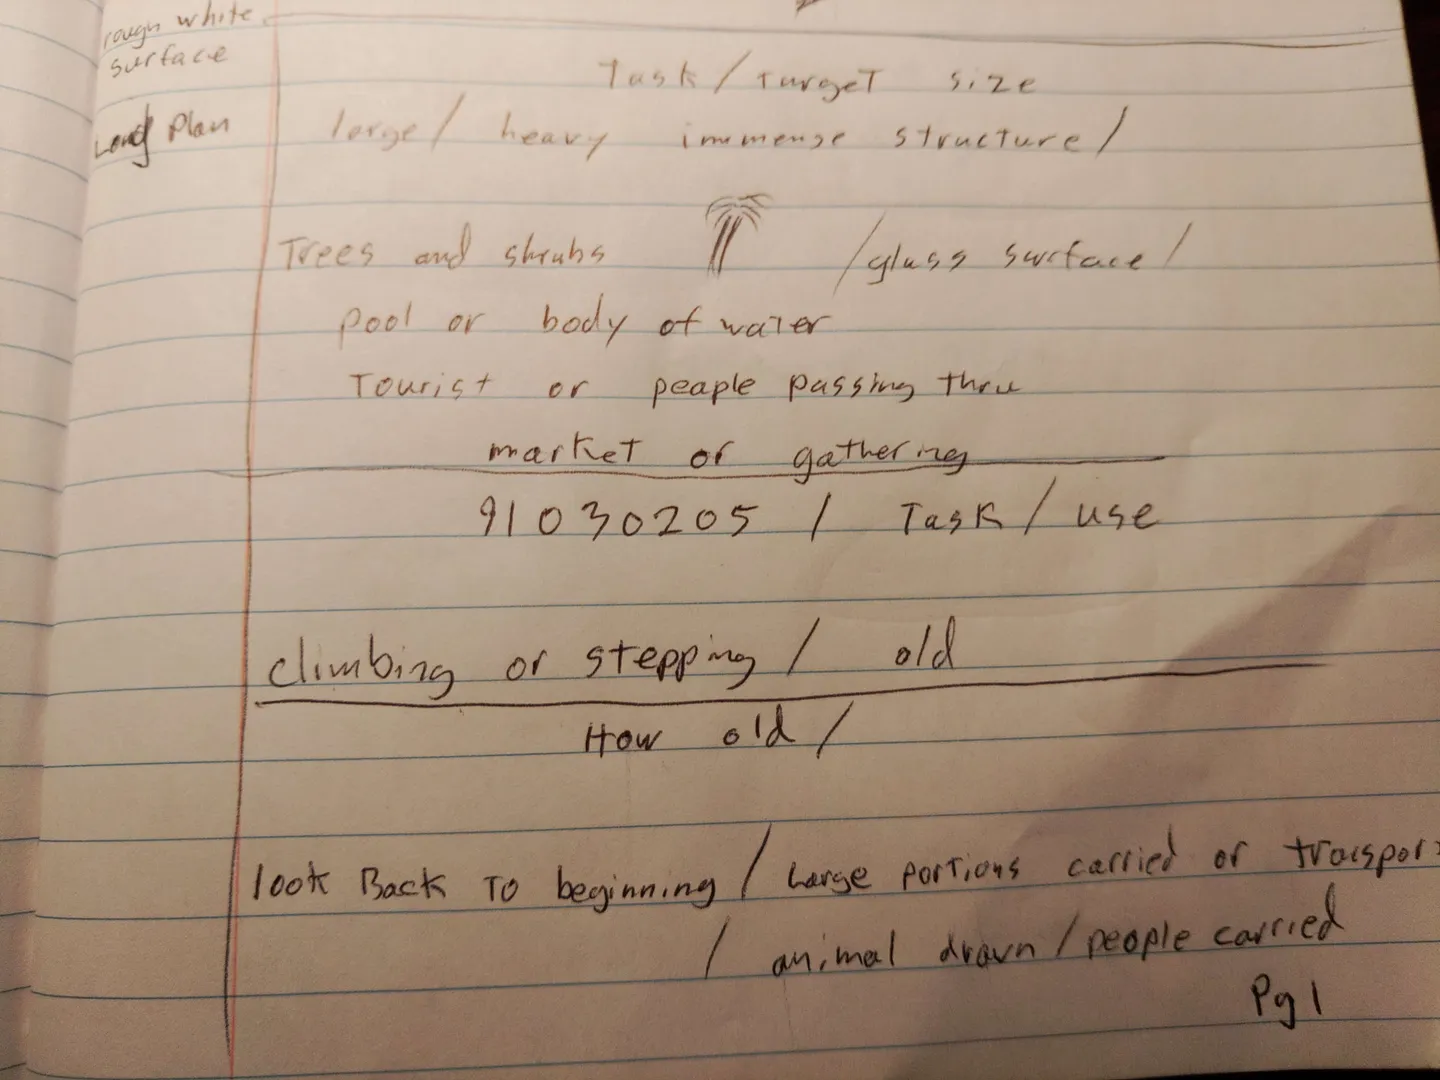 rough white
surface
Task / Target size
Plan large / heavy immense structure /
Trees and shrubs /glass surface/
pool or body of water
Tourist or peaple passing thru
market or gathering
91030205 / Task / use
climbing or stepping / old
How old /
look Back To beginning / Large portions carried or
/ animal drawn / people carried
Pg 1